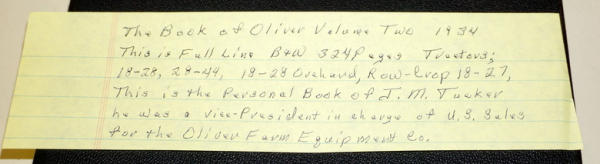 The Book of Oliver Volume Two 1934
This is Full Line B&W 324 Pages Tractors;
18-28, 28-44, 18-28 Orchard, Row-Crop 18-27,
This is the Personal Book of J. M. Tucker
he was a vice-President in charge of U.S. Sales
for the Oliver Farm Equipment Co.